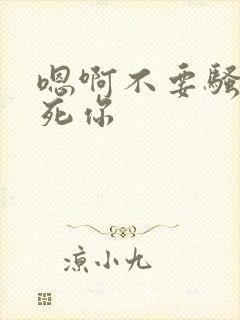 嗯啊不要骚
死你
凉小九